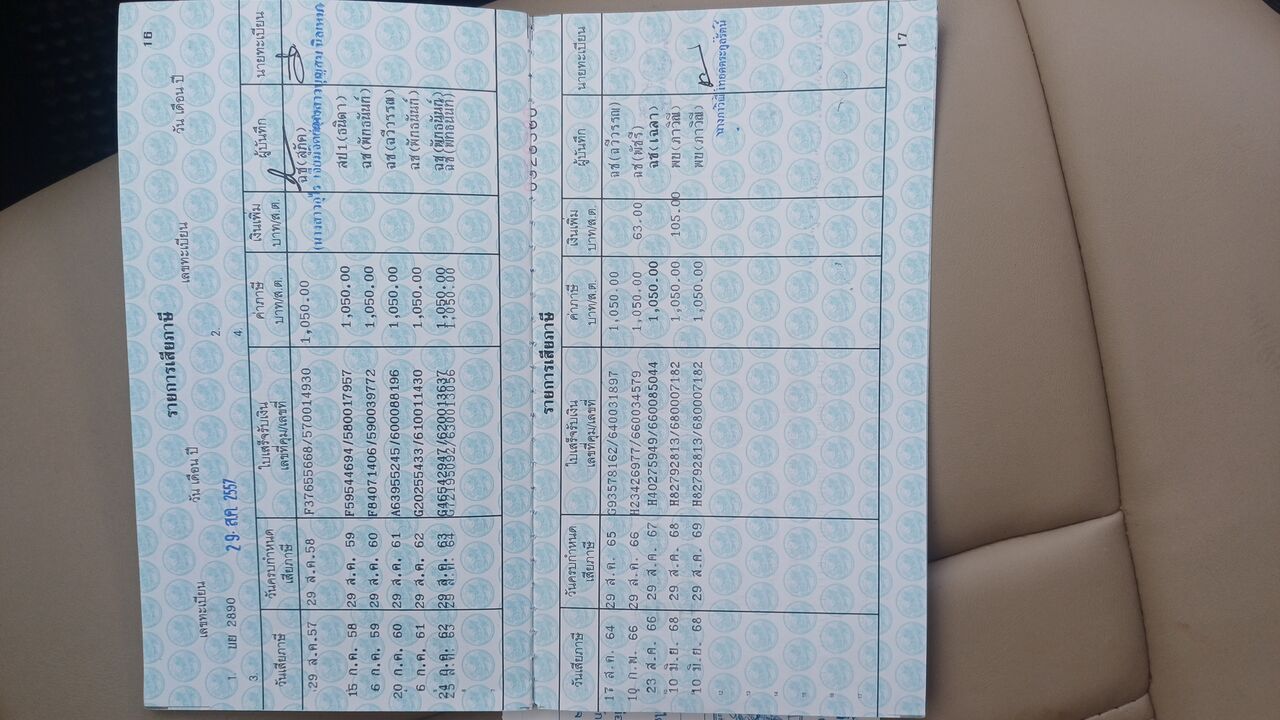 16
รายการเสียภาษี
เลขทะเบียน วัน เดือน ปี เลขทะเบียน วัน เดือน ปี
1. บย 2890 29 ส.ค. 2557 2.
3. 4.
วันเสียภาษี วันครบกำหนดเสียภาษี ใบเสร็จรับเงิน เล่มที่คุม/เลขที่ ค่าภาษี บาท/ส.ต. เงินเพิ่ม บาท/ส.ต. ผู้บันทึก นายทะเบียน
29 ส.ค.57 29 ส.ค.58 F37655668/570014930 1,050.00 ฉช(สุกัด)
15 ก.ค. 58 29 ส.ค. 59 F59544694/580017957 1,050.00 สป1(ธนิดา)
6 ก.ค. 59 29 ส.ค. 60 F84071406/590039772 1,050.00 ฉช(พัทธนันท์)
20 ก.ค. 60 29 ส.ค. 61 A63955245/600088196 1,050.00 ฉช(ฉวีวรรณ)
6 ก.ค. 61 29 ส.ค. 62 G20255433/610011430 1,050.00 ฉช(พัทธนันท์)
62 29 ส.ค. 63 G46542947/620013637 1,050.00 ฉช(พัทธนันท์)
25 ส.ค. 63 29 ส.ค. 64 630013056 1,050.00 ฉช(พัทธนันท์)
รายการเสียภาษี
วันเสียภาษี วันครบกำหนดเสียภาษี ใบเสร็จรับเงิน เล่มที่คุม/เลขที่ ค่าภาษี บาท/ส.ต. เงินเพิ่ม บาท/ส.ต. ผู้บันทึก นายทะเบียน
17 ส.ค. 64 29 ส.ค. 65 G93578162/640031897 1,050.00 ฉช(ฉวีวรรณ)
10 ก.พ. 66 29 ส.ค. 66 H23426977/660034579 1,050.00 63.00 ฉช(พัชรี)
23 ส.ค. 66 29 ส.ค. 67 H40275949/660085044 1,050.00 ฉช(เฉลา)
10 มิ.ย. 68 29 ส.ค. 68 H82792813/680007182 1,050.00 105.00 พย(ภาวิณี)
10 มิ.ย. 68 29 ส.ค. 69 H82792813/680007182 1,050.00 พย(ภาวิณี)
17